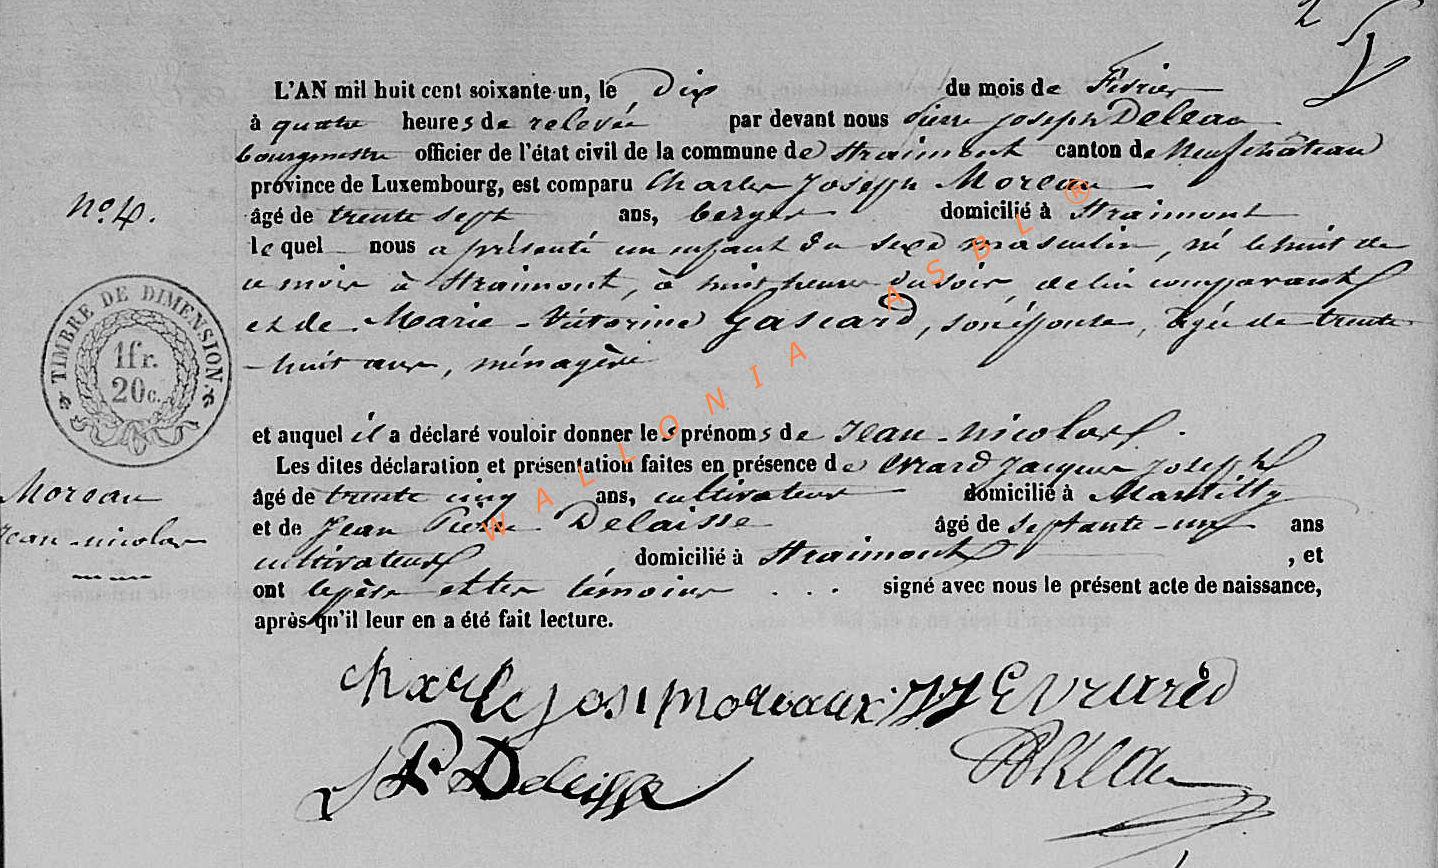 2
L'AN mil huit cent soixante-un, le Dix du mois de Février
à quatre heures de relevée par devant nous Pierre Joseph Deleau
bourgmestre officier de l'état civil de la commune de Straimont canton de Neufchâteau
province de Luxembourg, est comparu Charles Joseph Moreau
n.º 4.
âgé de trente sept ans, berger domicilié à Straimont
lequel nous a présenté un enfant du sexe masculin, né le huit de
ce mois à Straimont, à huit heures du soir, de lui comparant
et de Marie-Victorine Gascard, son épouse, âgée de trente
-huit ans, ménagère
TIMBRE DE DIMENSION.
1fr.
20c.
et auquel il a déclaré vouloir donner les prénoms de Jean-nicolas.
Les dites déclaration et présentation faites en présence de Evrard Jacques Joseph
âgé de trente cinq ans, cultivateur domicilié à Martilly
Moreau
Jean-nicolas
et de Jean Pierre Delaisse âgé de septante-un ans
cultivateur, domicilié à Straimont, et
ont le père et les témoins . . . signé avec nous le présent acte de naissance,
après qu'il leur en a été fait lecture.
Charle Jos Moreaux JJ Evrard
JP Delaisse
WALLONIA ASBL ®